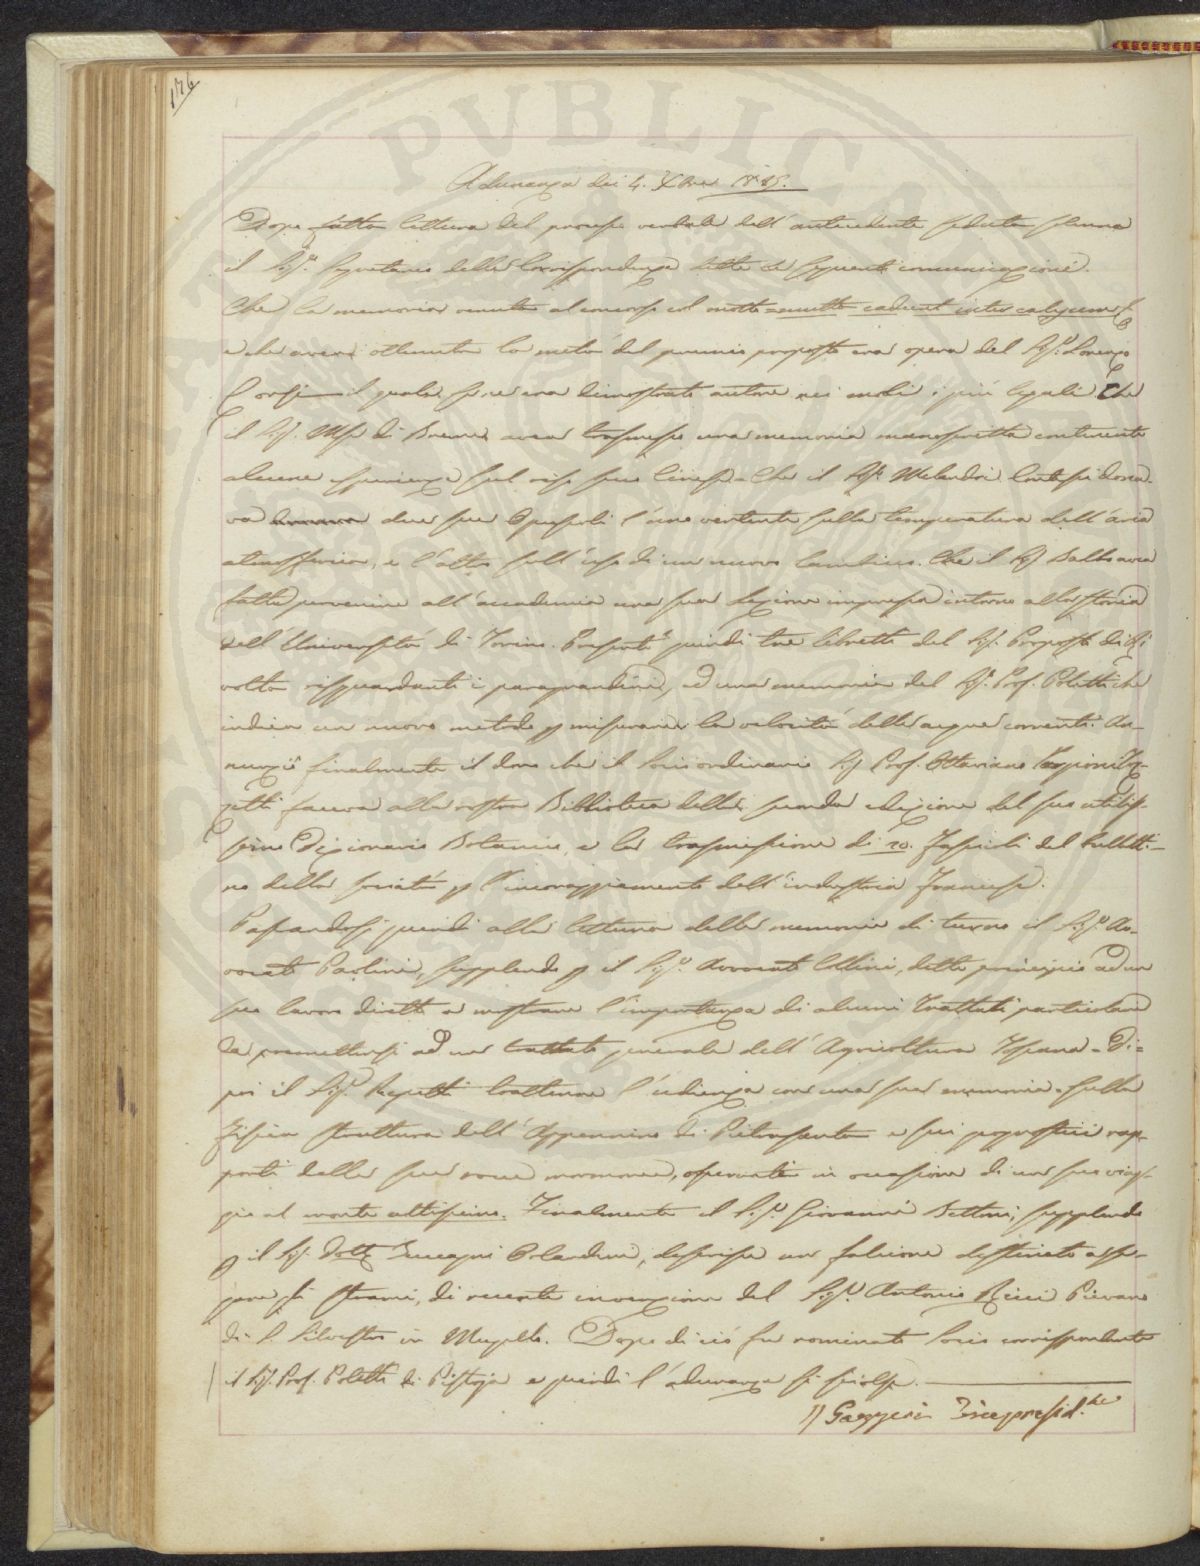 176
PUBLICA
Adunanza dei 4. Xbre 1825.
Dopo fatta lettura del processo verbale dell' antecedente seduta solenne
il Sig.r Segretario delle Corrispondenze dette le seguenti comunicazioni.
Che la memoria venuta al concorso col motto = multa cadunt inter calycem &
e che aveva ottenuta la metà del premio proposto era opera del Sig.r Lorenzo
il quale se ne era dimostrato autore nei modi i più legali Che
il Sig. Mse di Breme avea trasmesso una memoria manoscritta contenente
alcune esperienze sul riso secco Cinese = Che il Sig.r Melandri Contessi dona-
va due suoi Opuscoli l'uno vertente sulla temperatura dell'aria
atmosferica, e l'altro sull'uso di un nuovo Lambicco. Che il Sig Balbo avea
fatto pervenire all'accademia una sua Lezione impressa intorno alla storia
dell'Università di Torino. Presentò quindi tre libretti del Sig. Proposto di Ri
volta risguardanti i paragrandini, ed una memoria del Sig. Prof. Poletti che
indica un nuovo metodo p misurare la velocità delle acque correnti. An-
nunziò finalmente il dono che il Socio ordinario Sig Prof. Ottaviano Targioni Toz-
zetti faceva alla nostra Biblioteca della seconda edizione del suo utilis-
simo Dizionario Botanico, e la trasmissione di 20. Fascicoli del bulletti-
no della società p l'incoraggiamento dell'industria Francese.
Passandosi quindi alla lettura delle memorie di turno il Sig.r Av-
vocato Paolini, supplendo p il Sig.r Avvocato Collini, dette principio ad un
suo lavoro diretto a mostrare l'importanza di alcuni Trattati particolari
da premettersi ad un trattato generale dell'Agricoltura Toscana = Di-
poi il Sig.r Repetti trattenne l'udienza con una sua memoria = sulla
fisica struttura dell'Appennino di Pietrasanta e sui geognostici rap-
porti delle sue rocce marmoree, osservate in occasione di un suo viag-
gio al monte altissimo. Finalmente il Sig.r Giovanni Bettoni, supplendo
p il Sig. Dott. Zuccagni Orlandini, descrisse un falcione destinato a se-
gare gli strami, di recente invenzione del Sig.r Antonio Ricci Pievano
di S. Silvestro in Mugello. Dopo di ciò fu nominato Socio corrispondente
il Sig. Prof. Poletti di Pistoja e quindi l'adunanza si sciolse.
Gazzeri Vicepresid.te